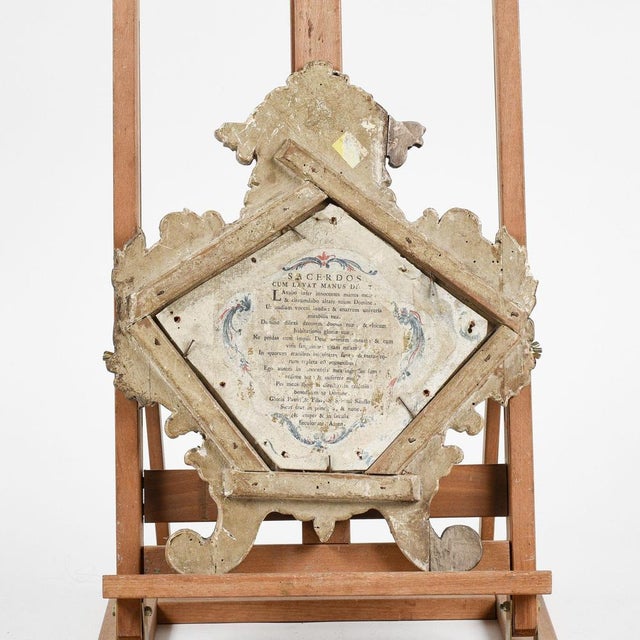 SACERDOS
CUM LAVAT MANUS
LAvabo inter innocentes manus meas
& circumdabo altare tuum Domine
Ut audiam vocem laudis & enarrem universa
mirabilia tua.
Domine dilexi decorem domus tuæ & locum
habitationis gloriæ tuæ
Ne perdas cum impiis Deus animam meam & cum
viris
In quorum manibus iniquitates sunt
repleta est muneribus
Ego autem in innocentia mea ingressus sum
Pes meus stetit in directo in ecclesiis
benedicam te Domine.
Gloria Patri, & Filio, &
Sicut erat in principio, & nunc,
semper & in sæcula
sæculorum Amen.